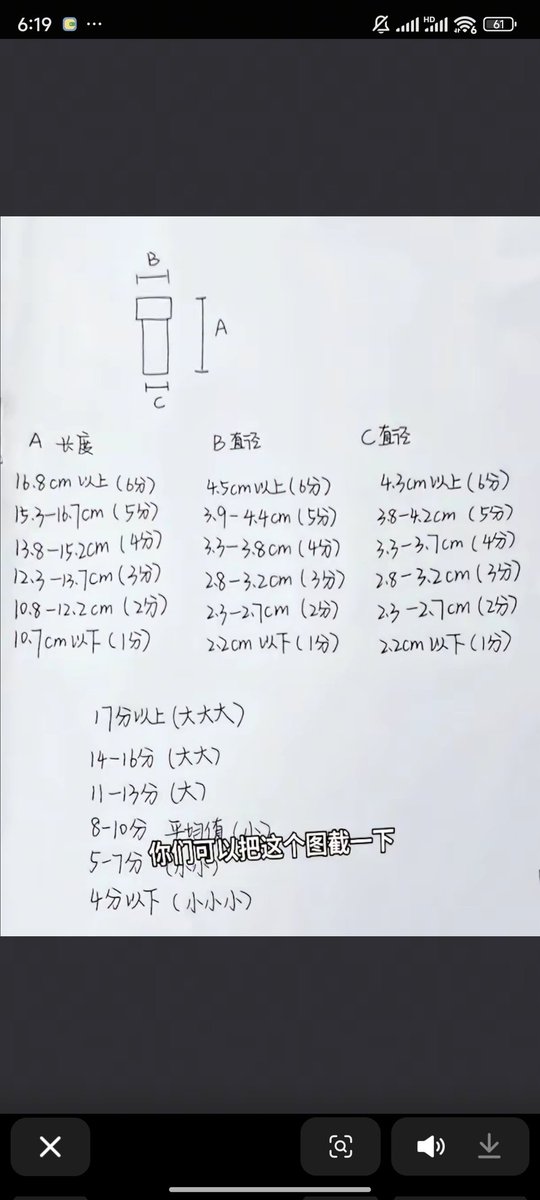 6:19
HD
6
61
B
A
C
A 长度
B 直径
C 直径
16.8cm 以上 (6分)
4.5cm 以上 (6分)
4.3cm 以上 (6分)
15.3-16.7cm (5分)
3.9-4.4cm (5分)
3.8-4.2cm (5分)
13.8-15.2cm (4分)
3.3-3.8cm (4分)
3.3-3.7cm (4分)
12.3-13.7cm (3分)
2.8-3.2cm (3分)
2.8-3.2cm (3分)
10.8-12.2cm (2分)
2.3-2.7cm (2分)
2.3-2.7cm (2分)
10.7cm 以下 (1分)
2.2cm 以下 (1分)
2.2cm 以下 (1分)
17分以上 (大大大)
14-16分 (大大)
11-13分 (大)
8-10分 平均值 (小)
你们可以把这个图截一下
5-7分 (小小)
4分以下 (小小小)